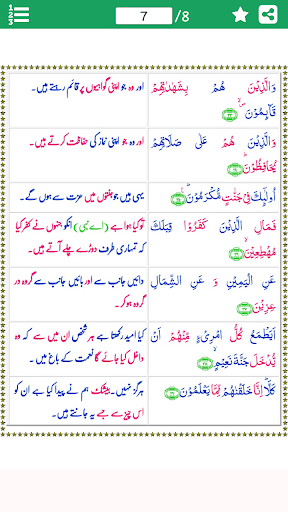 1
2
3
7
/8
وَالَّذِيْنَ هُمْ بِشَهٰدٰتِهِمْ
قَآئِمُوْنَ
اور وہ جو اپنی گواہیوں پر قائم رہتے ہیں۔
وَالَّذِيْنَ هُمْ عَلٰى صَلَاتِهِمْ
يُحَافِظُوْنَ
اور وہ جو اپنی نماز کی حفاظت کرتے ہیں۔
اُولٰٓئِكَ فِيْ جَنّٰتٍ مُّكْرَمُوْنَ
یہی ہیں جو جنتوں میں عزت سے ہوں گے۔
فَمَالِ الَّذِيْنَ كَفَرُوْا قِبَلَكَ
مُهْطِعِيْنَ
تو کیا ہوا ہے (اے نبی) انکو جنہوں نے کفر کیا
کہ تمہاری طرف دوڑے چلے آتے ہیں۔
عَنِ الْيَمِيْنِ وَ عَنِ الشِّمَالِ
عِزِيْنَ
دائیں جانب سے اور بائیں جانب سے گروہ در
گروہ ہو کر۔
اَيَطْمَعُ كُلُّ امْرِئٍ مِّنْهُمْ اَنْ
يُّدْخَلَ جَنَّةَ نَعِيْمٍ
کیا امید رکھتا ہے ہر شخص ان میں سے کہ وہ
داخل کیا جائے گا نعمت کے باغ میں۔
كَلَّا اِنَّا خَلَقْنٰهُمْ مِّمَّا يَعْلَمُوْنَ
ہرگز نہیں۔ بیشک ہم نے پیدا کیا ہے ان کو
اس چیز سے جسے یہ جانتے ہیں۔